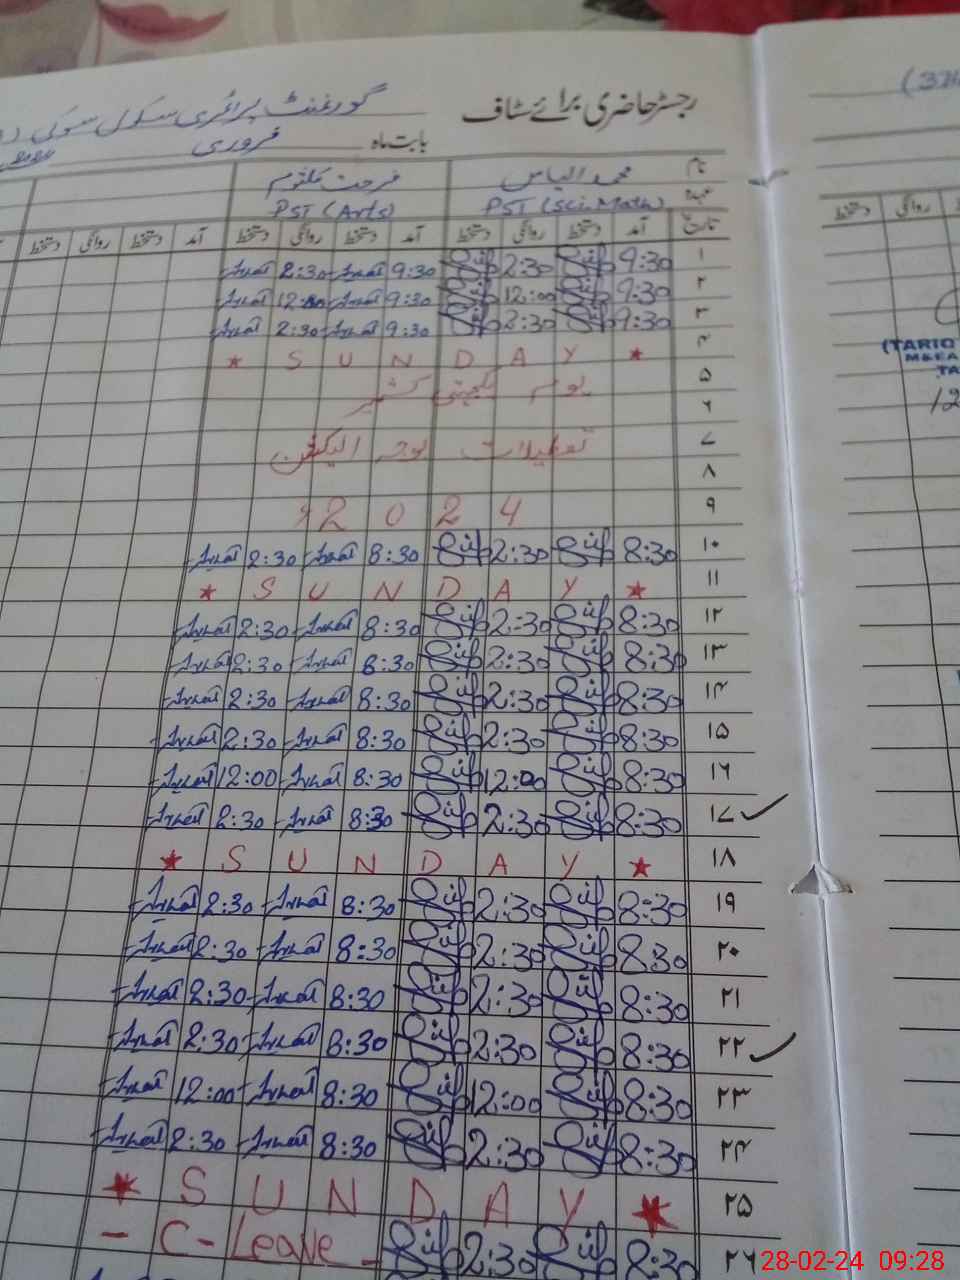 رجسٹر حاضری برائے سٹاف گورنمنٹ پرائمری سکول
بابت ماہ فروری
نام محمد الیاس فرحت کلثوم
عہدہ PST (Sci.Math) PST (Arts)
تاریخ آمد دستخط روانگی دستخط آمد دستخط روانگی دستخط آمد دستخط روانگی دستخط
۱ 9:30 2:30 9:30 2:30
۲ 9:30 12:00 9:30 12:00
۳ 9:30 2:30 9:30 2:30
۴ * SUNDAY *
۵ یوم یکجہتی کشمیر
۶
۷ تعطیلات بوجہ الیکشن
۸
۹ 2024
۱۰ 8:30 2:30 8:30 2:30
۱۱ * SUNDAY *
۱۲ 8:30 2:30 8:30 2:30
۱۳ 8:30 2:30 8:30 2:30
۱۴ 8:30 2:30 8:30 2:30
۱۵ 8:30 2:30 8:30 2:30
۱۶ 8:30 12:00 8:30 12:00
۱۷ 8:30 2:30 8:30 2:30
۱۸ * SUNDAY *
۱۹ 8:30 2:30 8:30 2:30
۲۰ 8:30 2:30 8:30 2:30
۲۱ 8:30 2:30 8:30 2:30
۲۲ 8:30 2:30 8:30 2:30
۲۳ 8:30 12:00 8:30 12:00
۲۴ 8:30 2:30 8:30 2:30
۲۵ * SUNDAY *
۲۶ 8:30 2:30 - C-Leave -
دستخط روانگی
(TARIQ
28-02-24 09:28